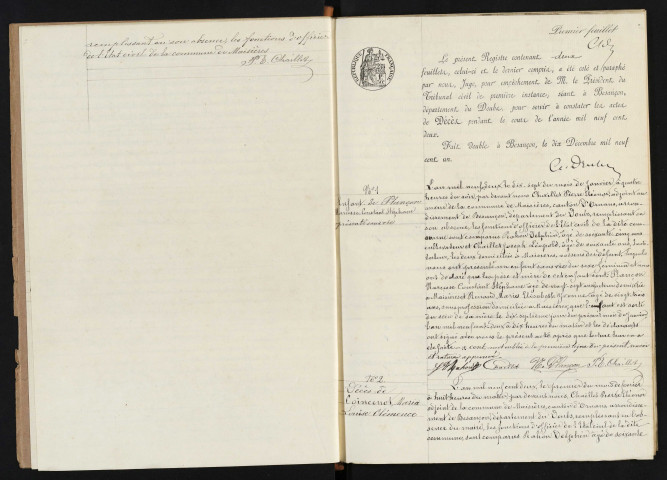 remplissant en son absence les fonctions d'officier
de l'Etat civil de la commune de Maisières
P. E. Chaillet
Premier feuillet
RÉPUBLIQUE FRANÇAISE
Le présent Registre contenant deux
feuillets, celui-ci et le dernier compris, a été coté et paraphé
par nous, Juge, pour empêchement de M. le Président du
Tribunal civil de première instance, séant à Besançon,
département du Doubs, pour servir à constater les actes
de Décès pendant le cours de l'année mil neuf cent
deux.
Fait double à Besançon, le dix Décembre mil neuf
cent un.
No 1
Enfant de
Narcisse Constant Stéphane
présenté sans vie
L'an mil neuf deux le dix sept du mois de janvier à quatre
heures du soir, par devant nous Chaillet Pierre Éléonor, adjoint au
maire de la commune de Maisières, canton d'Ornans, arron
dissement de Besançon, département du Doubs, remplissant en
son absence les fonctions d'officier de l'état civil de la dite com
mune sont comparus Rahon Delphin âgé de soixante cinq ans
cultivateur et Chaillet Joseph Léopold, âgé de
les deux domiciliés à Maisières, lesquels
nous ont présenté un enfant sans vie du sexe féminin et nous
ont déclaré que les père et mère de cet enfant sont
Narcisse Constant Stéphane âgé de
à Maisières et Renaud Maria Elisabeth femme âgée de vingt
ans, sans profession domiciliée à Maisières, que l'enfant est sorti
du sein de sa mère le dix septième jour du présent mois de janvier
l'an mil neuf cent deux à dix heures du matin et les déclarants
ont signé avec nous le présent acte après que lecture leur en a
été faite le mot oublié à la première ligne du présent
approuvé
Chaillet P. E. Chaillet
No 2
Décès de
Loincenot Maria
Louise Clémence
L'an mil neuf cent deux, le premier du mois de février
à huit heures du matin par devant nous, Chaillet Pierre Éléonor
adjoint de la commune de Maisières, canton d'Ornans, arrondisse
ment de Besançon, département du Doubs, remplissant en l'ab
sence du maire, les fonctions d'officier de l'état civil de la dite
commune, sont comparus Rahon Delphin âgé de soixante